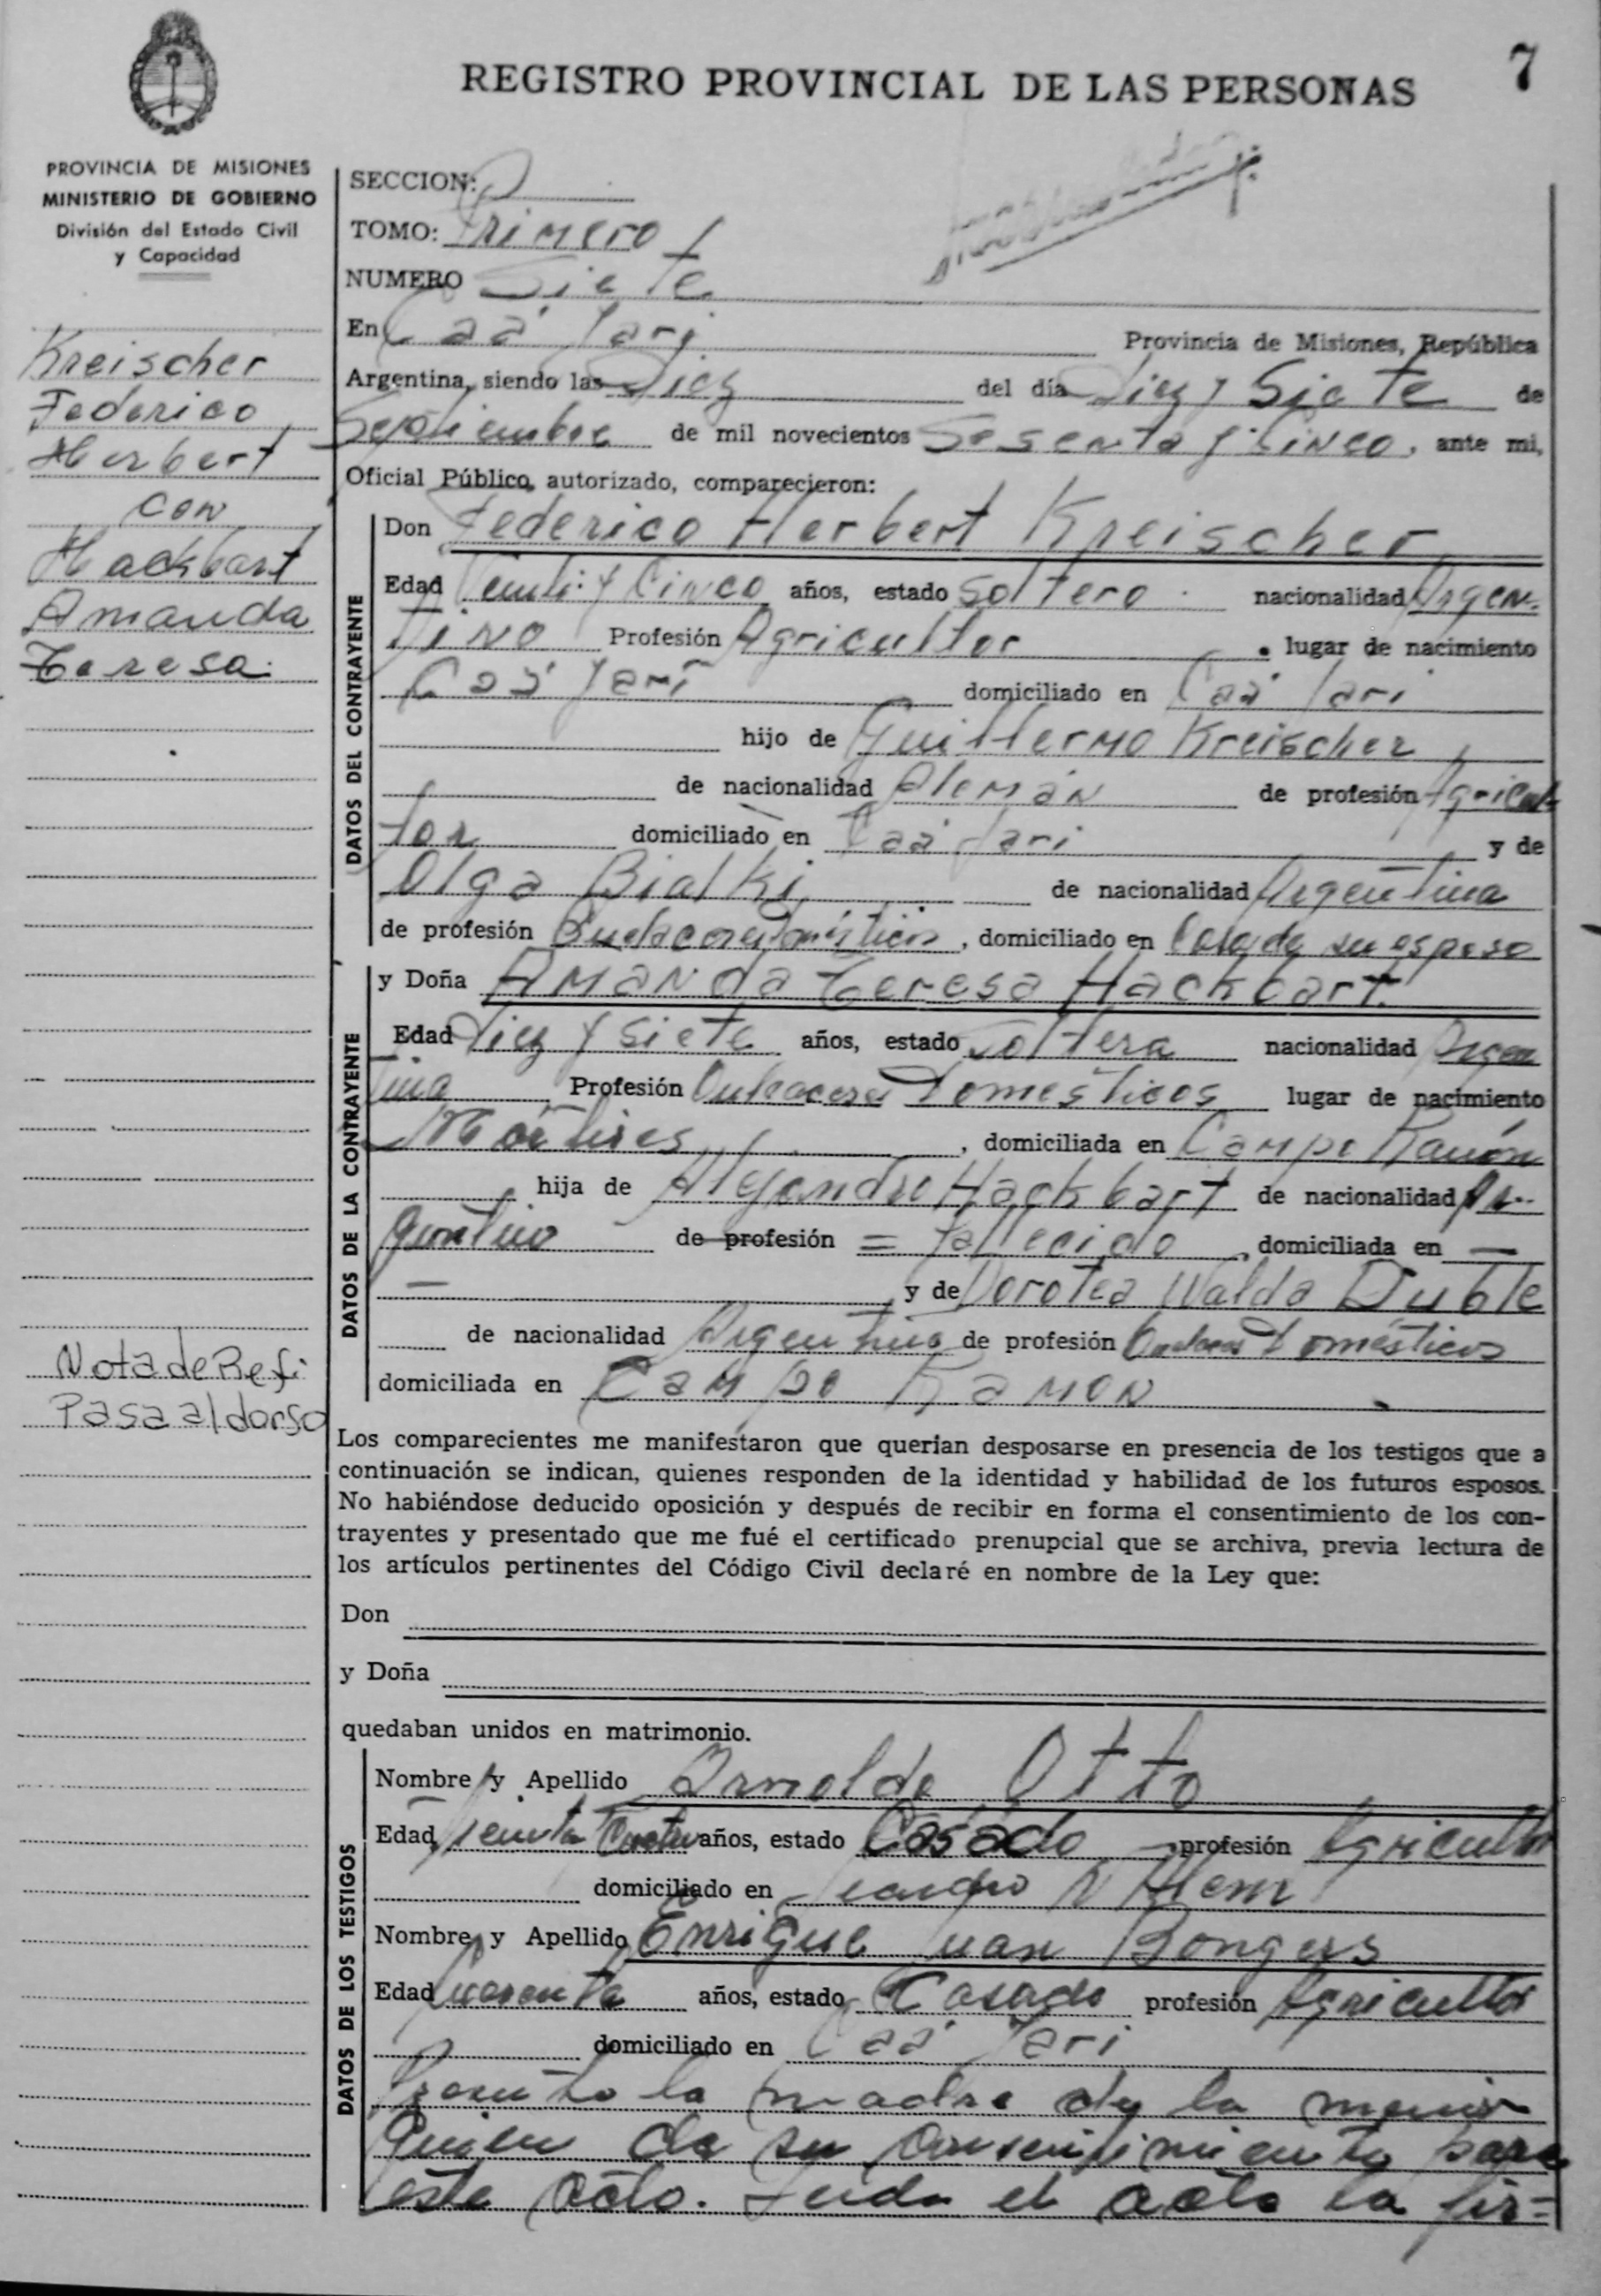 7
REGISTRO PROVINCIAL DE LAS PERSONAS
PROVINCIA DE MISIONES
MINISTERIO DE GOBIERNO
División del Estado Civil
y Capacidad
Kreischer
Federico
Herbert
con
Hackbart
Amanda
Teresa.
Nota de Ref:
Pasa al dorso
SECCION:
TOMO: Primero
NUMERO Siete
En Caá Yarí Provincia de Misiones, República
Argentina, siendo las Diez del día Diez y Siete de
Septiembre de mil novecientos Sesenta y Cinco, ante mi,
Oficial Público, autorizado, comparecieron:
DATOS DEL CONTRAYENTE
Don Federico Herbert Kreischer
Edad Veinti y Cinco años, estado soltero nacionalidad Argen-
tino Profesión Agricultor. lugar de nacimiento
Caá Yarí domiciliado en Caá Yarí
hijo de Guillermo Kreischer,
de nacionalidad Alemán de profesión Agricul
tor domiciliado en Caá Yari y de
Olga Bialki de nacionalidad Argentina
de profesión domiciliado en Casa de su esposo
DATOS DE LA CONTRAYENTE
y Doña Amanda Teresa Hackbart
Edad Diez y siete años, estado Soltera nacionalidad Argen
tina Profesión Quehaceres Domésticos lugar de nacimiento
Mártires, domiciliada en Campo Ramón
hija de Alejandro Hackbart de nacionalidad Ar-
gentino de profesión = Fallecido, domiciliada en —
— y de Dorotea Walda Duble
de nacionalidad Argentina de profesión Quehaceres Domésticos
domiciliada en Campo Ramon
Los comparecientes me manifestaron que querían desposarse en presencia de los testigos que a
continuación se indican, quienes responden de la identidad y habilidad de los futuros esposos.
No habiéndose deducido oposición y después de recibir en forma el consentimiento de los con-
trayentes y presentado que me fué el certificado prenupcial que se archiva, previa lectura de
los artículos pertinentes del Código Civil declaré en nombre de la Ley que:
Don
y Doña
quedaban unidos en matrimonio.
DATOS DE LOS TESTIGOS
Nombre y Apellido Arnoldo Otto
Edad Cuatro años, estado Casado profesión Agricultor
domiciliado en Leandro N Alem
Nombre y Apellido Enrique Juan Bongers
Edad Cuarenta años, estado Casado profesión Agricultor
domiciliado en Caá Yari
Presente la madre de la menor
Quien da su consentimiento para
este acto. Leida el acta la fir=